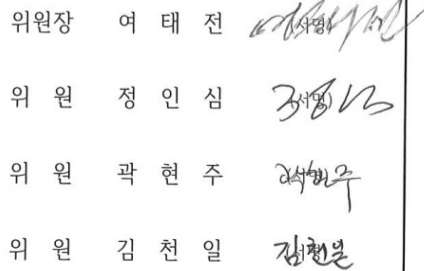 위원장 여 태 전 (서명)
위 원 정 인 심 (서명)
위 원 곽 현 주 (서명)
위 원 김 천 일 (서명)